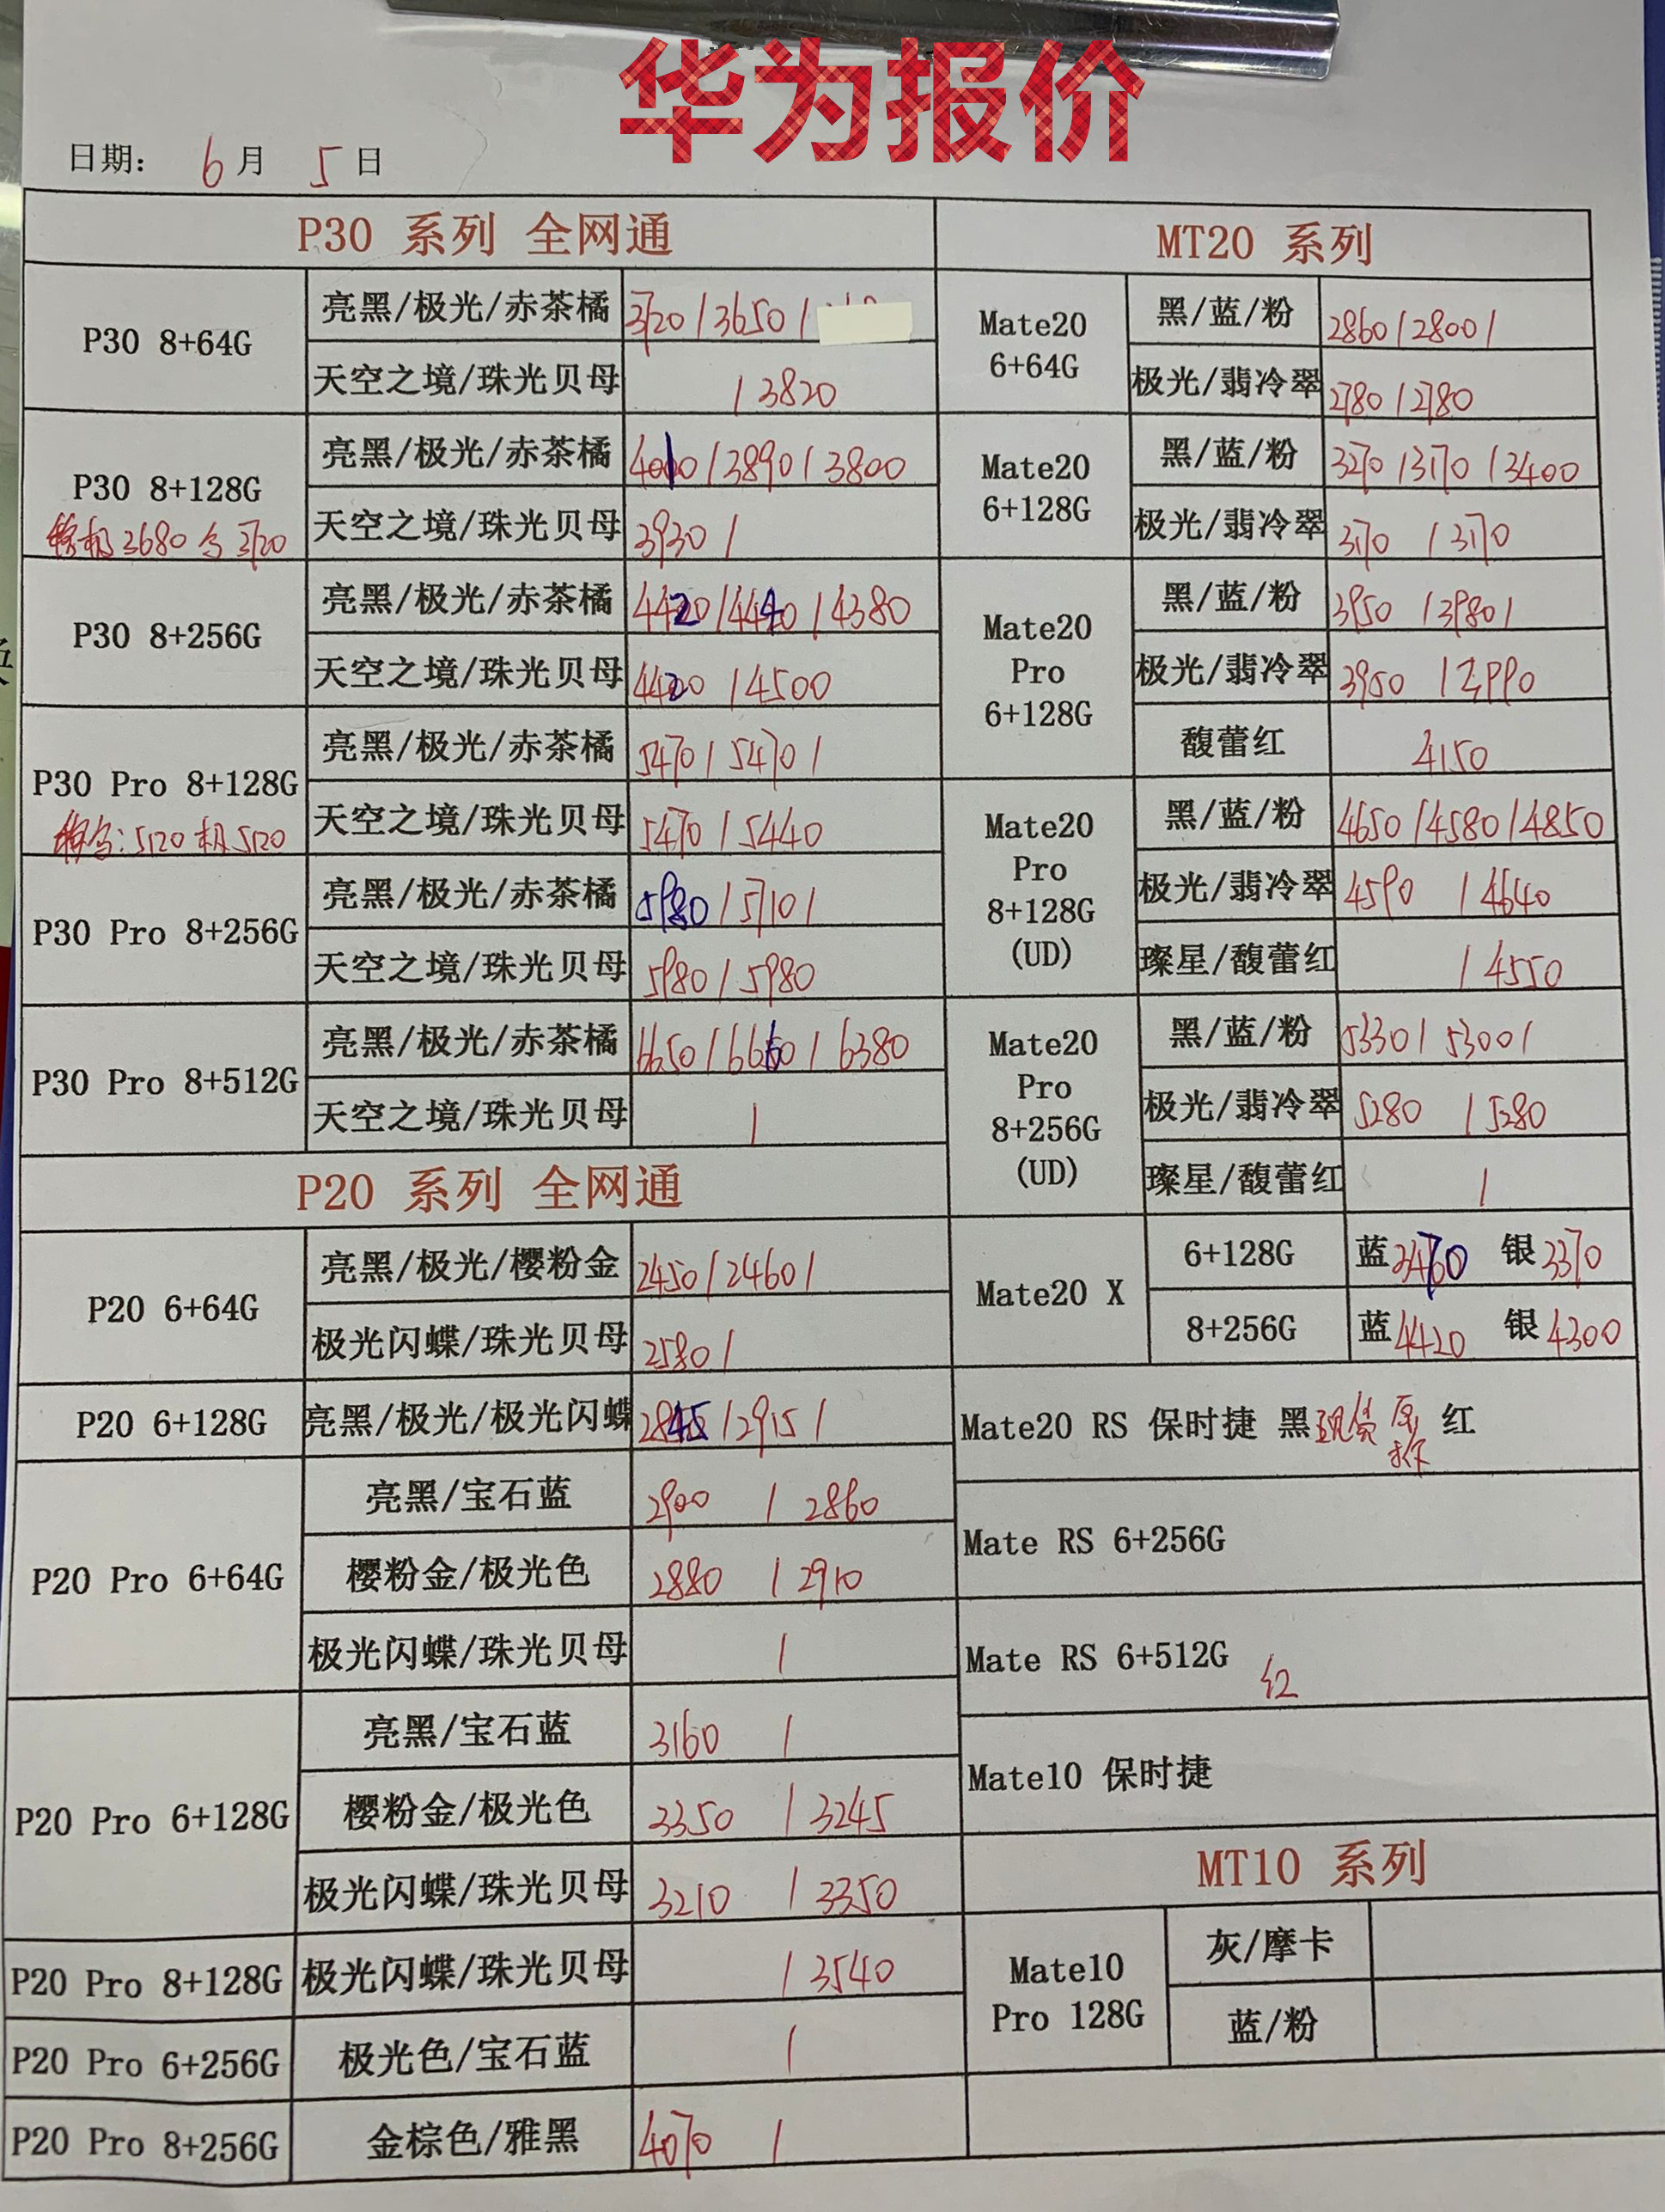 华为报价
日期： 6月 5日
P30 系列 全网通
P30 8+64G
亮黑/极光/赤茶橘 3720/3650/
天空之境/珠光贝母 /3820
P30 8+128G
3680 3720
亮黑/极光/赤茶橘 4010/3890/3800
天空之境/珠光贝母 3930/
P30 8+256G
亮黑/极光/赤茶橘 4420/4440/4380
天空之境/珠光贝母 4420/4500
P30 Pro 8+128G
5120 机5120
亮黑/极光/赤茶橘 5470/5470/
天空之境/珠光贝母 5470/5440
P30 Pro 8+256G
亮黑/极光/赤茶橘 5980/5710/
天空之境/珠光贝母 5980/5980
P30 Pro 8+512G
亮黑/极光/赤茶橘 6650/6660/6380
天空之境/珠光贝母 /
P20 系列 全网通
P20 6+64G
亮黑/极光/樱粉金 2450/2460/
极光闪蝶/珠光贝母 2580/
P20 6+128G 亮黑/极光/极光闪蝶 2845/2915/
P20 Pro 6+64G
亮黑/宝石蓝 2900 / 2860
樱粉金/极光色 2880 / 2910
极光闪蝶/珠光贝母 /
P20 Pro 6+128G
亮黑/宝石蓝 3160 /
樱粉金/极光色 3350 / 3245
极光闪蝶/珠光贝母 3210 / 3350
P20 Pro 8+128G 极光闪蝶/珠光贝母 / 3540
P20 Pro 6+256G 极光色/宝石蓝 /
P20 Pro 8+256G 金棕色/雅黑 4070 /
MT20 系列
Mate20
6+64G
黑/蓝/粉 2860/2800/
极光/翡冷翠 2780/2780
Mate20
6+128G
黑/蓝/粉 3270/3170/3400
极光/翡冷翠 3170 / 3170
Mate20
Pro
6+128G
黑/蓝/粉 3950 /3980/
极光/翡冷翠 3950 /3990
馥蕾红 4150
Mate20
Pro
8+128G
(UD)
黑/蓝/粉 4650/4580/4850
极光/翡冷翠 4590 / 4640
璨星/馥蕾红 / 4550
Mate20
Pro
8+256G
(UD)
黑/蓝/粉 5330/ 5300/
极光/翡冷翠 5280 / 5280
璨星/馥蕾红 /
Mate20 X
6+128G 蓝3470 银3370
8+256G 蓝4420 银4300
Mate20 RS 保时捷 黑现货 红
Mate RS 6+256G
Mate RS 6+512G 红
Mate10 保时捷
MT10 系列
Mate10
Pro 128G
灰/摩卡
蓝/粉